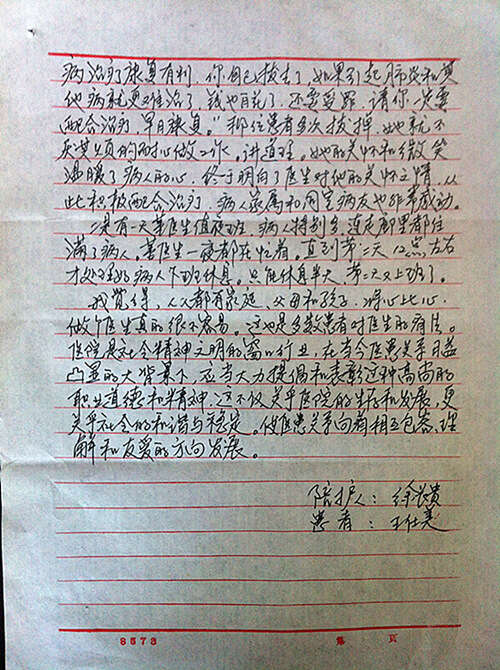 病治疗康复有利，你自己拔去了，如果引起肺炎和其
他病就更难治了，钱也白花了，还要受罪，请你一定要
配合治疗，早日康复。"那位患者多次拔掉，她就不
厌其烦的耐心做工作。讲道理。她的关怀和微笑
温暖了病人的心，终于明白了医生对他的关怀之情，从
此积极配合治疗，病人家属和同室病友也非常感动。
二是有一天 医生值夜班，病人特别多，连走廊里都住
满了病人。 医生一夜都在忙着。直到第二天12点左右
才处理好病人下班休息。只能休息半天，第二天又上班了。
我觉得，人人都有家庭、父母和孩子，将心比心，
做个医生真的很不容易。这也是多数患者对医生的看法。
医院是社会精神文明的窗口行业，在当今医患关系日益
凸显的大背景下，应当大力提倡和表彰这种高尚的
职业道德和精神，这不仅关乎医院的生存和发展，更
关乎社会的和谐与稳定。使医患关系向着相互包容、理
解和友爱的方向发展。
陪护人：徐 贵
患者：王仕美
8573 第 页